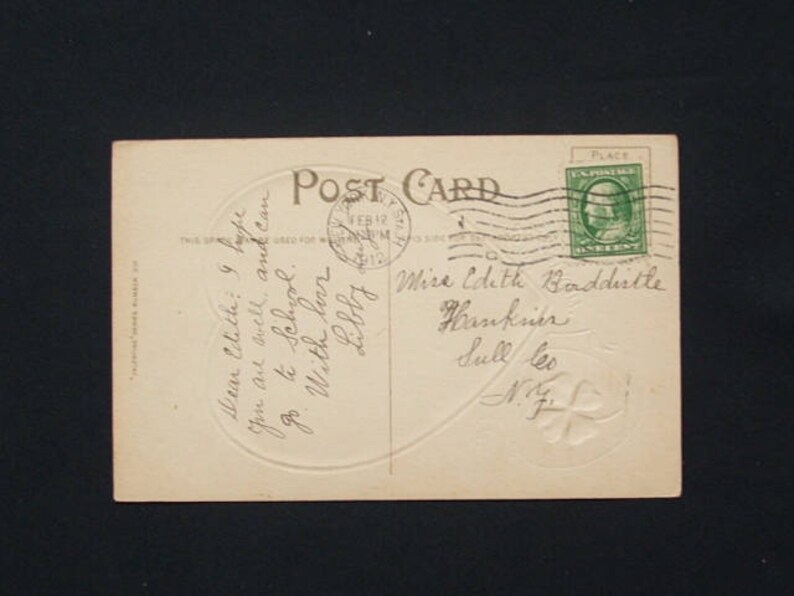 POST CARD
PLACE
U.S. POSTAGE
ONE CENT
FEB 12
THIS SPACE
USED FOR
THIS SIDE FOR THE
Dear Edith: I hope
you are well and can
go to School.
With love
Libby
Miss Edith
Hankins
Sull Co
N.Y.
"VALENTINE" SERIES NUMBER